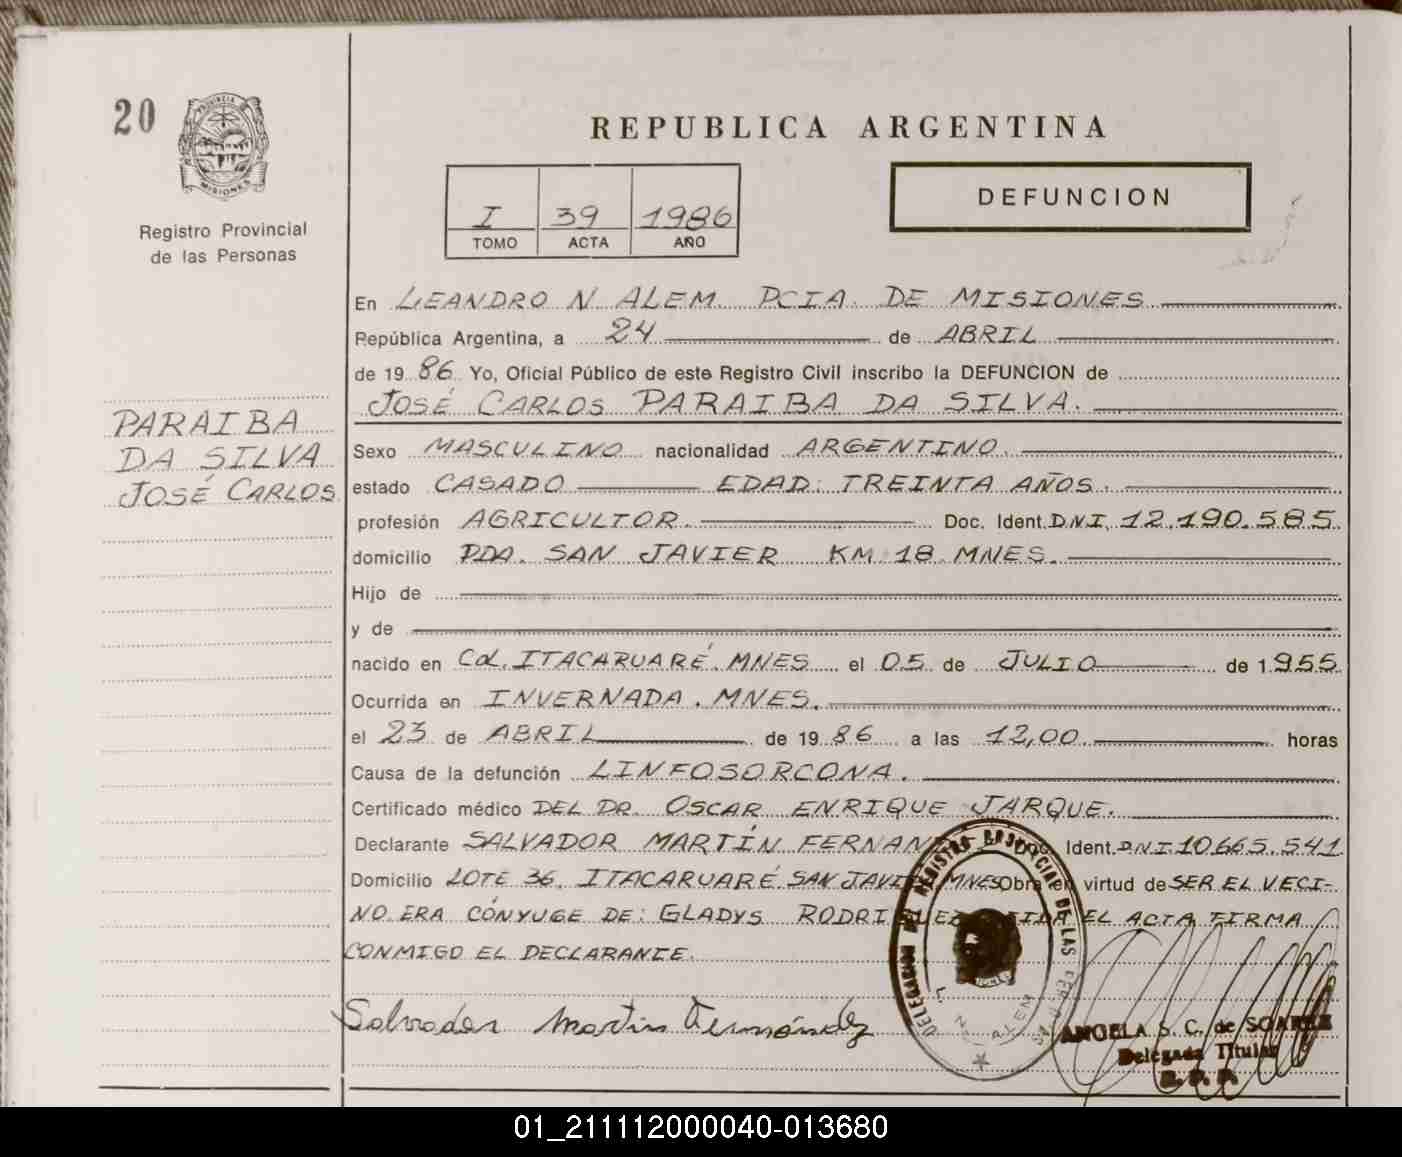 20
PROVINCIA DE
MISIONES
Registro Provincial
de las Personas
PARAIBA
DA SILVA
JOSÉ CARLOS
REPUBLICA ARGENTINA
I 39 1986
TOMO ACTA AÑO
DEFUNCION
En LEANDRO N ALEM PCIA. DE MISIONES
República Argentina, a 24 de ABRIL
de 19 86 Yo, Oficial Público de este Registro Civil inscribo la DEFUNCION de
JOSÉ CARLOS PARAIBA DA SILVA.
Sexo MASCULINO nacionalidad ARGENTINO.
estado CASADO EDAD: TREINTA AÑOS.
profesión AGRICULTOR. Doc. Ident. DNI. 12.190.585
domicilio PDA. SAN JAVIER KM 18 MNES.
Hijo de
y de
nacido en COL. ITACARUARÉ. MNES el 05 de JULIO de 1955
Ocurrida en INVERNADA. MNES.
el 23 de ABRIL de 19 86 a las 12,00 horas
Causa de la defunción LINFOSORCONA.
Certificado médico DEL DR. OSCAR ENRIQUE JARQUE.
Declarante SALVADOR MARTÍN Ident. DNI 10665.541
Domicilio LOTE 36. ITACARUARÉ SAN JAVI MNES Obra en virtud de SER EL VECI-
NO ERA CÓNYUGE DE: GLADYS EL ACTA FIRMA
CONMIGO EL DECLARANTE.
Salvador Martin Fernández
DELEGACION DEL REGISTRO PROVINCIAL DE LAS PERSONAS
L. N. ALEM
ANGELA S. C. de SOAREZ
Delegada Titular
R. P. P.
01_211112000040-013680